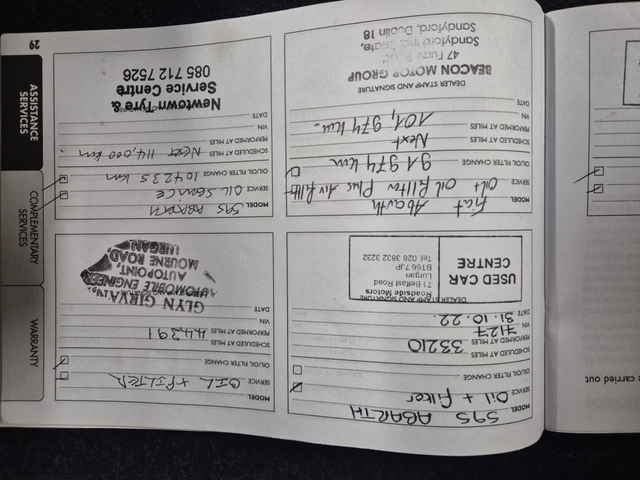 e carried out
MODEL 595 ABARTH
SERVICE Oil + Filter
OIL/OIL FILTER CHANGE
SCHEDULED AT MILES
PERFORMED AT MILES 33210
VIN 7127
DATE 31.10.22.
DEALER STAMP AND SIGNATURE
USED CAR
CENTRE
Roadside Motors
71 Belfast Road
Lurgan
BT66 7JP
Tel: 028 3832 3232
MODEL
SERVICE OIL + FILTER
OIL/OIL FILTER CHANGE
SCHEDULED AT MILES
PERFORMED AT MILES 44391
VIN
DATE
GLYN GIRVAN,
AUTOMOBILE ENGINEER
AUTOPOINT,
MOURNE ROAD,
LURGAN.
MODEL Fiat Abarth
SERVICE Oil + Oil Filter Plus Air Filter
OIL/OIL FILTER CHANGE 91974 km
SCHEDULED AT MILES Next
PERFORMED AT MILES
VIN 101,974 km.
DATE
DEALER STAMP AND SIGNATURE
BEACON MOTOR GROUP
47 Furze Road,
Sandyford Ind. Estate,
Sandyford, Dublin 18
MODEL 595 ABARTH
SERVICE OIL SERVICE
OIL/OIL FILTER CHANGE 104235 km
SCHEDULED AT MILES NEXT 114,000 km.
PERFORMED AT MILES
VIN
DATE
Newtown Tyre &
Service Centre
085 712 7526
WARRANTY
COMPLEMENTARY
SERVICES
ASSISTANCE
SERVICES
29